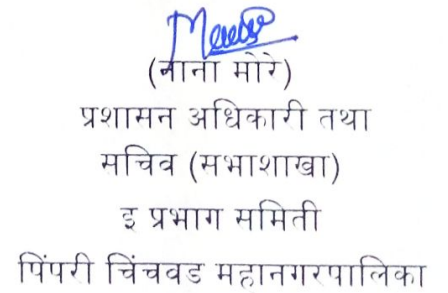 (नाना मोरे)
प्रशासन अधिकारी तथा
सचिव (सभाशाखा)
इ प्रभाग समिती
पिंपरी चिंचवड महानगरपालिका